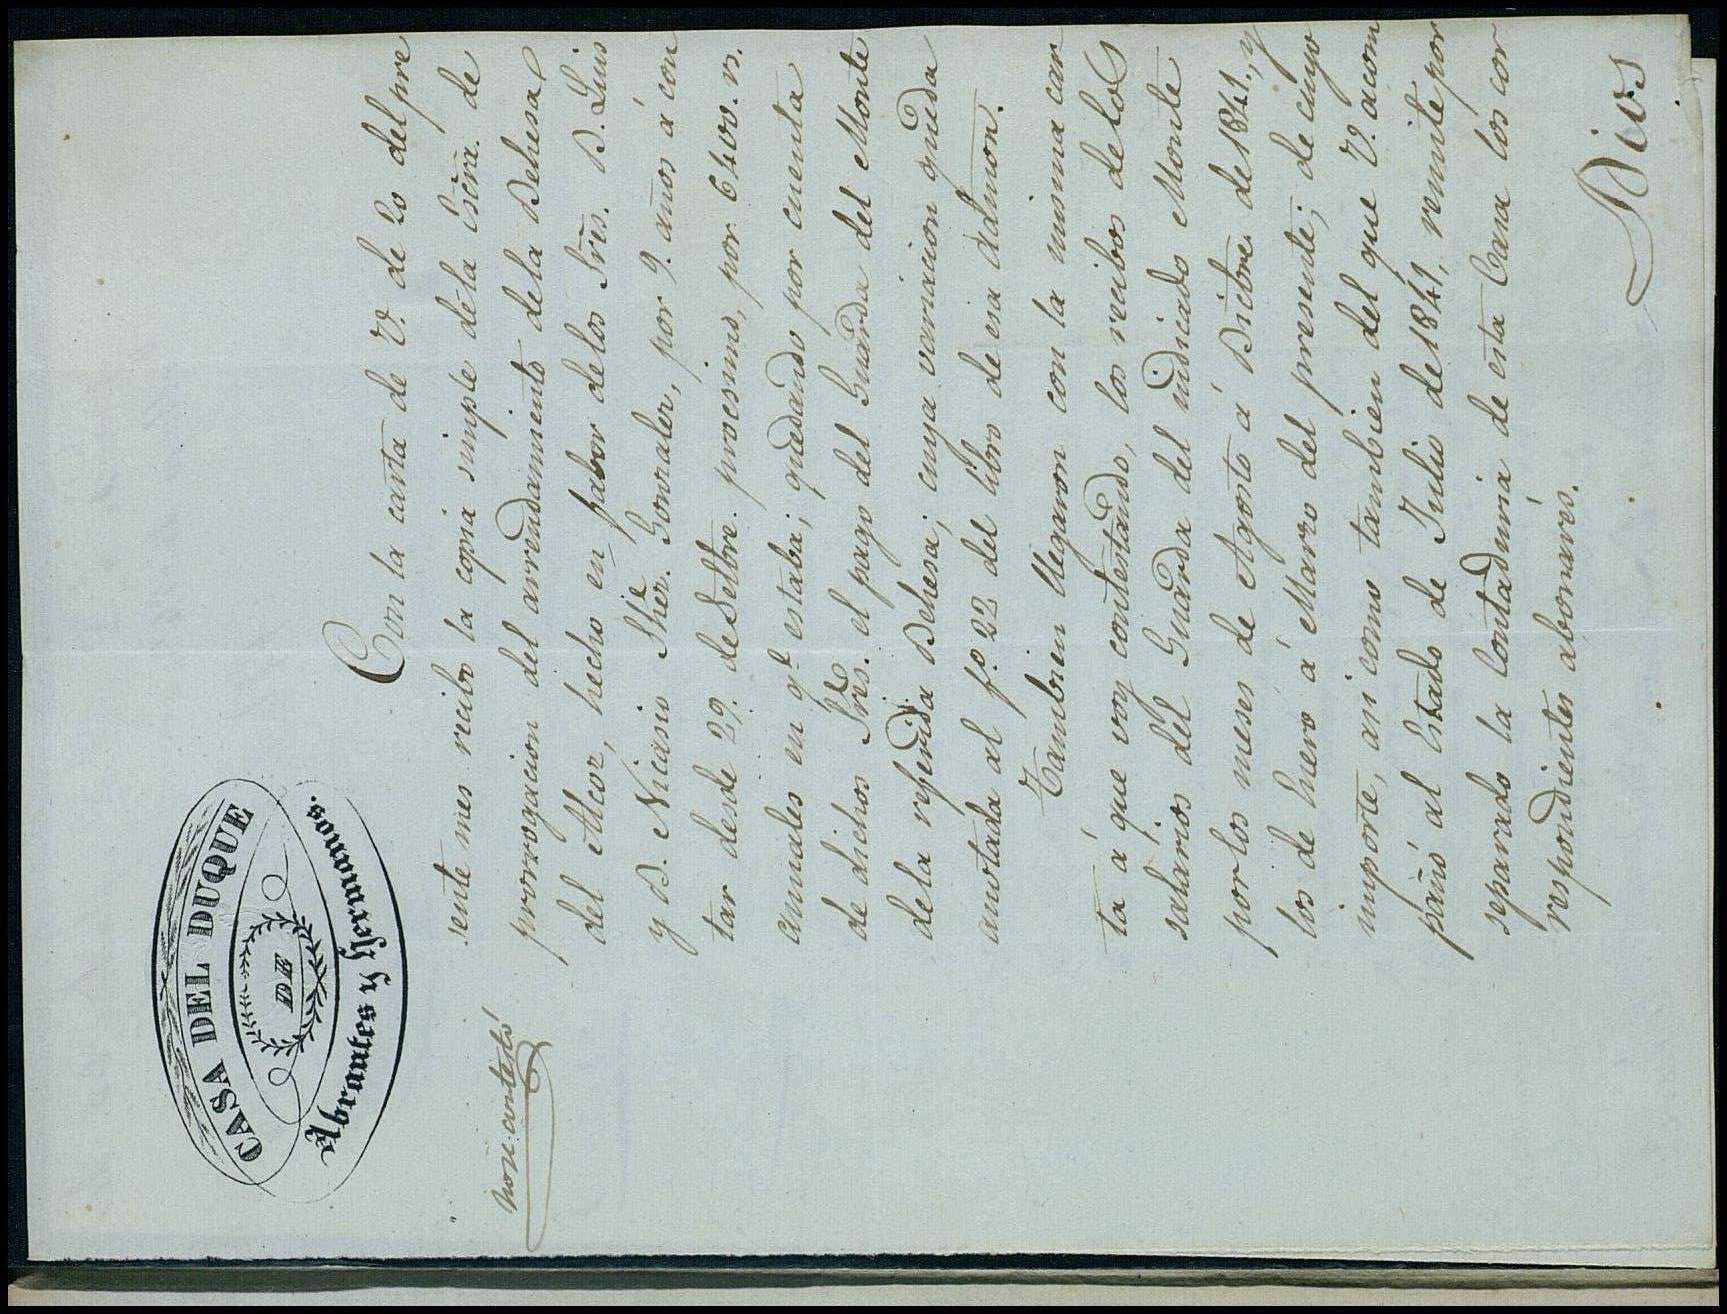 CASA DEL DUQUE
DE
Abrantes y Hermanos.
Con la carta de V. de 20 del pre
sente mes recibo la copia simple de la Escra. de
prorrogacion del arrendamiento de la Dehesa
del Alcor, hecho en fabor de los Sres. D. Luis
y D. Nicasio Gonzalez, por 9. años á con
tar desde 29. de Setbre. procsimo, por 6400. rs.
anuales en qe. estaba; quedando por cuenta
de dichos Sres. el pago del Guarda del Monte
de la referida Dehesa; cuya variacion queda
anotada al fo. 22 del libro de esa Admon.
Tambien llegaron con la misma car
ta á que voy contestando, los recibos de los
salarios del Guarda del indicado Monte
por los meses de Agosto á Dicbre. de 1841, y
los de Enero á Marzo del presente; de cuyo
importe, asi como tambien del que V. acom
pañó al Estado de Julio de 1841, remite por
separado la Contaduria de esta Casa los cor
respondientes abonarés.
Dios